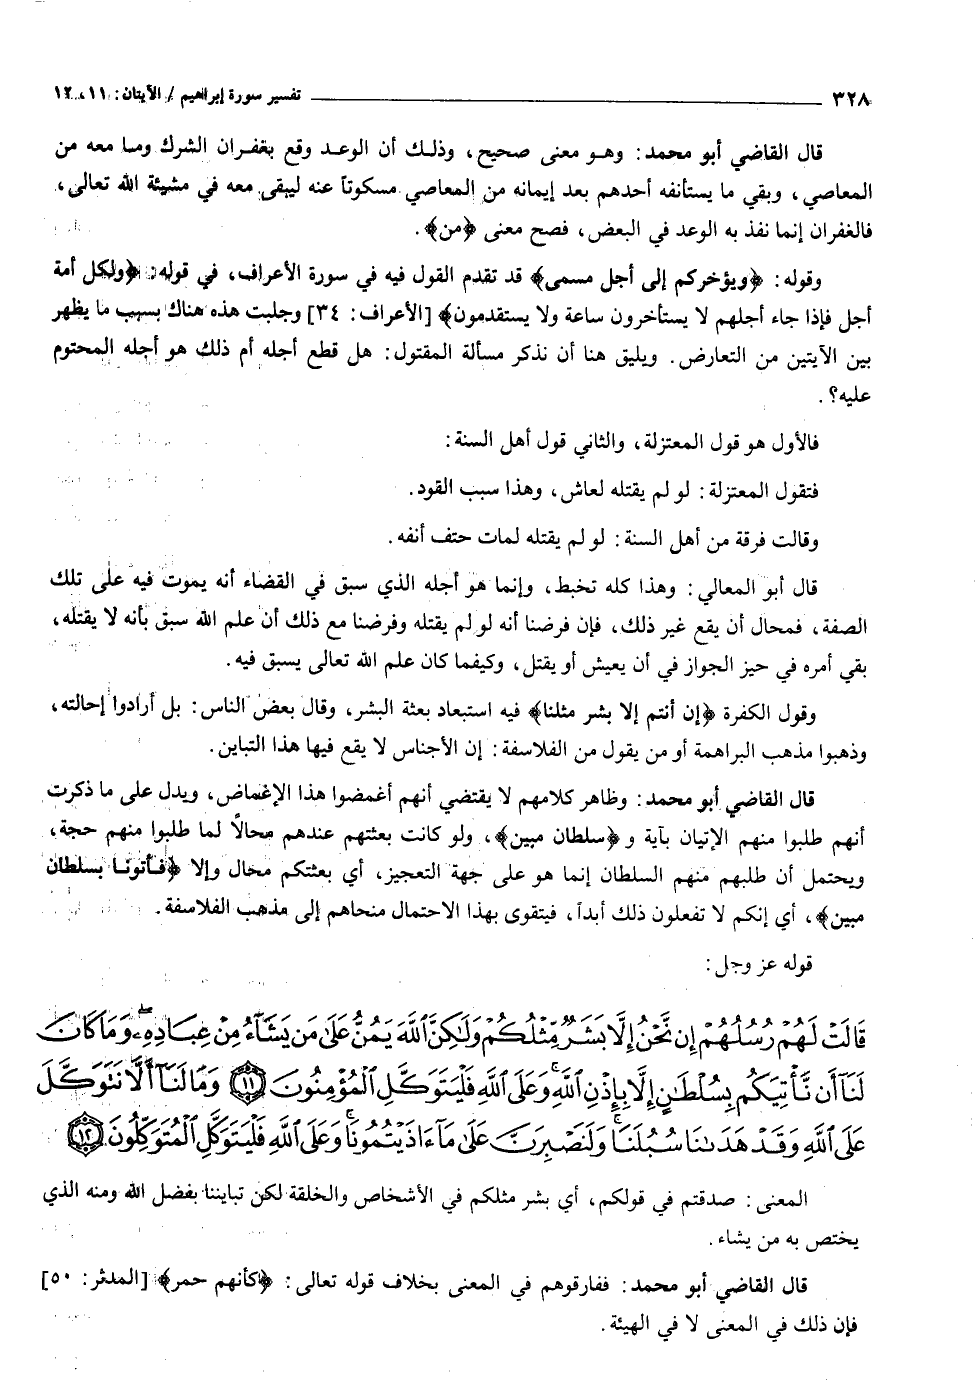 ٣٢٨ ــــــــــ تفسير سورة إبراهيم / الآيتان: ١١، ١٢
قال القاضي أبو محمد: وهو معنى صحيح، وذلك أن الوعد وقع بغفران الشرك وما معه من
المعاصي، وبقي ما يستأنفه أحدهم بعد إيمانه من المعاصي مسكوتاً عنه ليبقى معه في مشيئة الله تعالى،
فالغفران إنما نفذ به الوعد في البعض، فصح معنى ﴿من﴾.
وقوله: ﴿ويؤخركم إلى أجل مسمى﴾ قد تقدم القول فيه في سورة الأعراف، في قوله: ﴿ولكل أمة
أجل فإذا جاء أجلهم لا يستأخرون ساعة ولا يستقدمون﴾ [الأعراف: ٣٤] وجلبت هذه هناك بسبب ما يظهر
بين الآيتين من التعارض. ويليق هنا أن نذكر مسألة المقتول: هل قطع أجله أم ذلك هو أجله المحتوم
عليه؟.
فالأول هو قول المعتزلة، والثاني قول أهل السنة:
فتقول المعتزلة: لو لم يقتله لعاش، وهذا سبب القود.
وقالت فرقة من أهل السنة: لو لم يقتله لمات حتف أنفه.
قال أبو المعالي: وهذا كله تخبط، وإنما هو أجله الذي سبق في القضاء أنه يموت فيه على تلك
الصفة، فمحال أن يقع غير ذلك، فإن فرضنا أنه لو لم يقتله وفرضنا مع ذلك أن علم الله سبق بأنه لا يقتله،
بقي أمره في حيز الجواز في أن يعيش أو يقتل، وكيفما كان علم الله تعالى يسبق فيه.
وقول الكفرة ﴿إن أنتم إلا بشر مثلنا﴾ فيه استبعاد بعثة البشر، وقال بعض الناس: بل أرادوا إحالته،
وذهبوا مذهب البراهمة أو من يقول من الفلاسفة: إن الأجناس لا يقع فيها هذا التباين.
قال القاضي أبو محمد: وظاهر كلامهم لا يقتضي أنهم أغمضوا هذا الإغماض، ويدل على ما ذكرت
أنهم طلبوا منهم الإتيان بآية و ﴿سلطان مبين﴾، ولو كانت بعثتهم عندهم محالاً لما طلبوا منهم حجة،
ويحتمل أن طلبهم منهم السلطان إنما هو على جهة التعجيز، أي بعثتكم محال وإلا ﴿فأتونا بسلطان
مبين﴾، أي إنكم لا تفعلون ذلك أبداً، فيتقوى بهذا الاحتمال منحاهم إلى مذهب الفلاسفة.
قوله عز وجل:
قَالَتْ لَهُمْ رُسُلُهُمْ إِن نَّحْنُ إِلَّا بَشَرٌ مِّثْلُكُمْ وَلَٰكِنَّ ٱللَّهَ يَمُنُّ عَلَىٰ مَن يَشَآءُ مِنْ عِبَادِهِۦ ۖ وَمَا كَانَ
لَنَآ أَن نَّأْتِيَكُم بِسُلْطَٰنٍ إِلَّا بِإِذْنِ ٱللَّهِ ۚ وَعَلَى ٱللَّهِ فَلْيَتَوَكَّلِ ٱلْمُؤْمِنُونَ ﴿١١﴾ وَمَا لَنَآ أَلَّا نَتَوَكَّلَ
عَلَى ٱللَّهِ وَقَدْ هَدَىٰنَا سُبُلَنَا ۚ وَلَنَصْبِرَنَّ عَلَىٰ مَآ ءَاذَيْتُمُونَا ۚ وَعَلَى ٱللَّهِ فَلْيَتَوَكَّلِ ٱلْمُتَوَكِّلُونَ ﴿١٢﴾
المعنى: صدقتم في قولكم، أي بشر مثلكم في الأشخاص والخلقة لكن تبايننا بفضل الله ومنه الذي
يختص به من يشاء.
قال القاضي أبو محمد: ففارقوهم في المعنى بخلاف قوله تعالى: ﴿كأنهم حمر﴾ [المدثر: ٥٠]
فإن ذلك في المعنى لا في الهيئة.